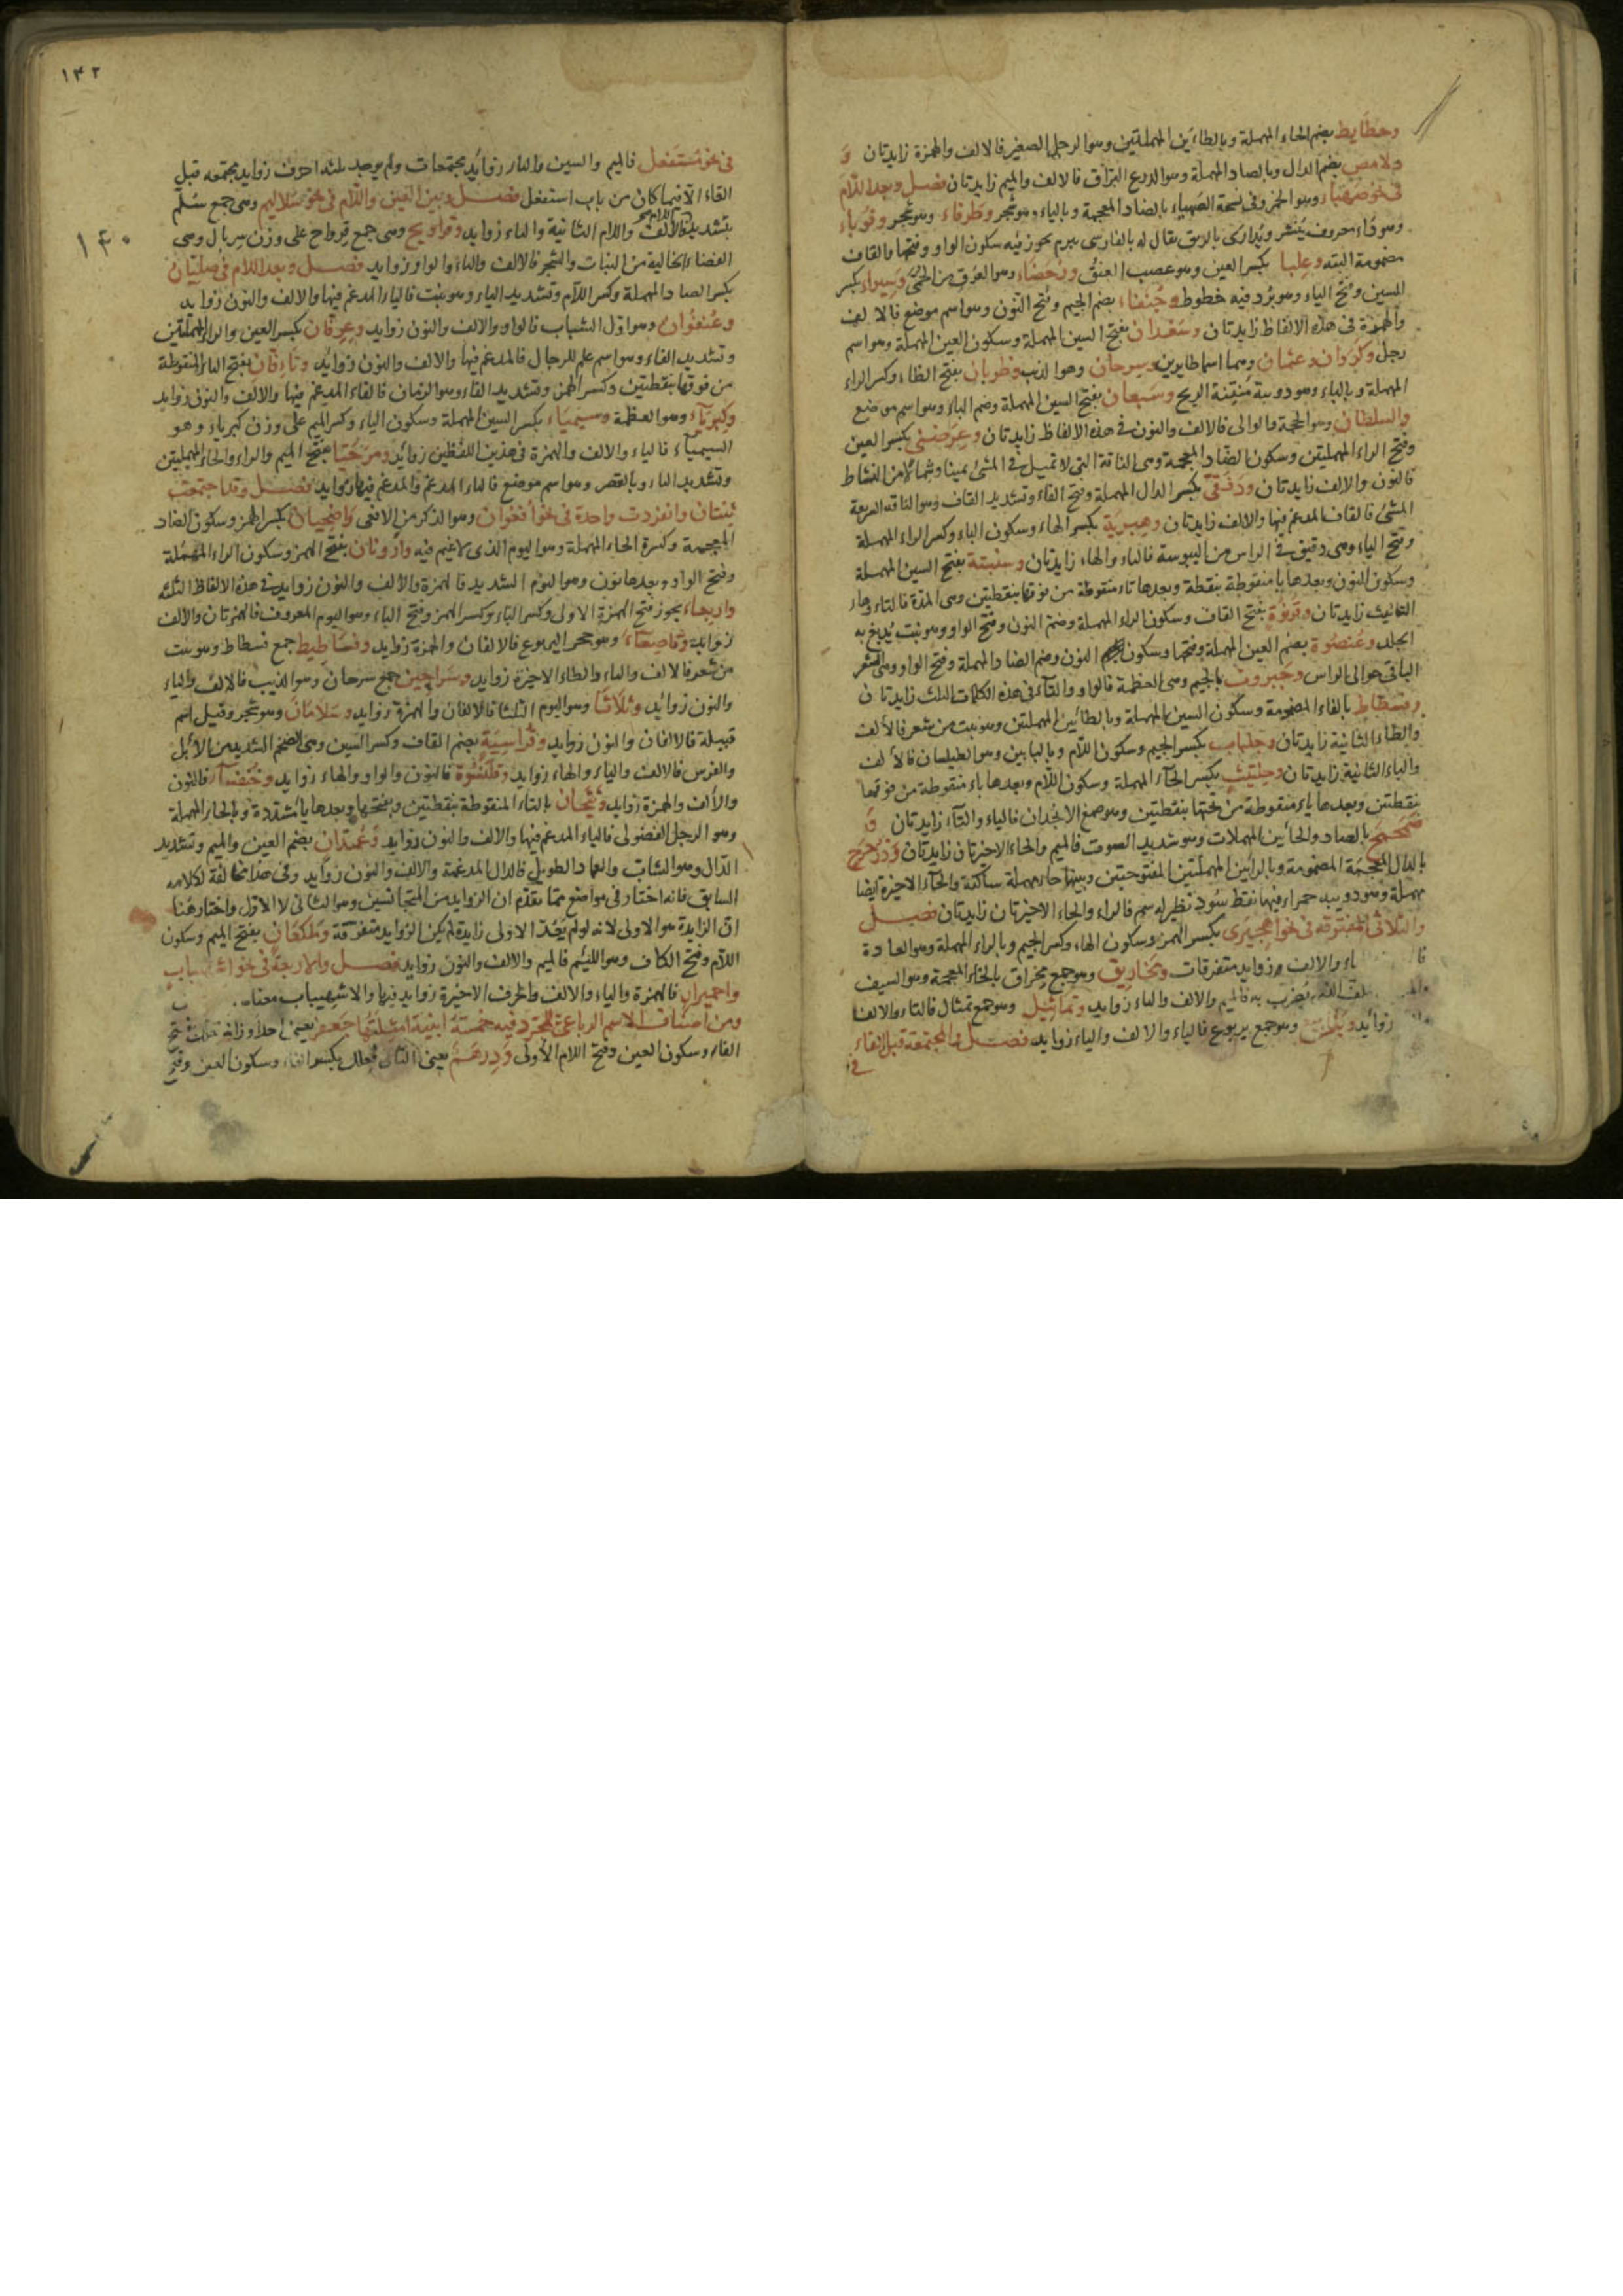 وحطايط بضم الحاء المهملة وبالطاءين المهملتين وهو الرجل الصغير فالالف والهمزة زايدتان و
دلامص بضم الدال وبالصاد المهملة وهو الدرع البراق فالالف والميم زايدتان فصل وبعد اللام
فى نحو صهباء وهو الخمر وفى نسخة الضهياء بالضاد المعجمة وبالياء وهو شجر وطرفاء وهو شجر وقوباء
وهو داء معروف ينتشر ويداوى بالريق يقال له بالفارسى بريم يجوز فيه سكون الواو وفتحها والقاف
مضمومة البتة وعلبا بكسر العين وهو عصب العنق ورحضاء وهو العرق من الحمى وسيراء بكسر
السين وفتح الياء وهو برد فيه خطوط وجنفاء بضم الجيم وفتح النون وهو اسم موضع فالالف
والهمزة فى هذه الالفاظ زايدتان وسعدان بفتح السين المهملة وسكون العين المهملة وهو اسم
رجل وكروان وعثمان وهما اسما طايرين وسرحان وهو الذئب وظربان بفتح الظاء وكسر الراء
المهملة وبالباء وهو دويبة منتنة الريح وسبعان بفتح السين المهملة وضم الباء وهو اسم موضع
والسلطان وهو الحجة والوالى فالالف والنون فى هذه الالفاظ زايدتان وعرضنى بكسر العين
وفتح الراء المهملتين وسكون الضاد المعجمة وهى الناقة التى لا تميل فى المشى يمينا وشمالا من النشاط
فالنون والالف زايدتان ودفقى بكسر الدال المهملة وفتح الفاء وتشديد القاف وهو الناقة السريعة
المشى فالقاف المدغم فيها والالف زايدتان وهبرية بكسر الهاء وسكون الباء وكسر الراء المهملة
وفتح الياء وهى دقيق فى الراس من اليبوسة فالياء والهاء زايدتان وسنبتة بفتح السين المهملة
وسكون النون وبعدها با منقوطة بنقطة وبعدها تاء منقوطة من فوقها بنقطتين وهى المدة فالتاء وهاء
التانيث زايدتان وقرنوة بفتح القاف وسكون الراء المهملة وضم النون وفتح الواو وهو نبت يدبغ به
الجلد وعنصوة بضم العين المهملة وفتحها وسكون النون وضم الصاد المهملة وفتح الواو وهى الشعر
الباقى حوالى الراس وجبروت بالجيم وهى العظمة فالواو والتاء فى هذه الكلمات الثلث زايدتان
وفسطاط بالفاء المضمومة وسكون السين المهملة وبالطائين المهملتين وهو بيت من شعر فالالف
والطاء الثانية زايدتان وجلباب بكسر الجيم وسكون اللام وبالبابين وهو الطيلسان فالالف
والباء الثانية زايدتان وحلتيت بكسر الحاء المهملة وسكون اللام وبعدها تاء منقوطة من فوقها
بنقطتين وبعدها ياء منقوطة من تحتها بنقطتين وهو صمغ الانجدان فالياء والتاء زايدتان و
صمحمح بالصاد والحائين المهملات وهو شديد الصوت فالميم والحاء الاخيرتان زايدتان وذرحرح
بالذال المعجمة المضمومة وبالرائين المهملتين المفتوحتين وبينها حاء مهملة ساكنة والحاء الاخيرة ايضا
مهملة وهو دويبة حمراء فيها نقط سود تطير له سم فالراء والحاء الاخيرتان زايدتان فصل
والثلاث المفترقة فى نحو اهجيرى بكسر الهمزة وسكون الهاء وكسر الجيم وبالراء المهملة وهو العادة
فا ياء والالف زوايد متفرقات ومخاريق وهو جمع مخراق بالخاء المعجمة وهو السيف
يضرب به فالميم والالف والياء زوايد وتماثيل وهو جمع تمثال فالتاء والالف
زوايد ويرابيع وهو جمع يربوع فالياء والالف والياء زوايد فصل والمجتمعة قبل الفاء
فى
١٤٢
١٤٠
فى نحو مستفعل فالميم والسين والتاء زوايد مجتمعات ولم يوجد ثلثة احرف زوايد مجتمعه قبل
الفاء الا فيما كان من باب استفعل فصل وبين العين واللام فى نحو سلاليم وهى جمع سلم
بتشديد اللام فالالف واللام الثانية والياء زوايد وقراويح وهى جمع قرواح على وزن سربال وهى
الفضاء الخالية من النبات والشجر فالالف والياء والواو زوايد فصل وبعد اللام فى صليان
بكسر الصاد المهملة وكسر اللام وتشديد الياء وهو نبت فالياء المدغم فيها والالف والنون زوايد
وعنفوان وهو اول الشباب فالواو والالف والنون زوايد وعرفان بكسر العين والراء المهملتين
وتشديد الفاء وهو اسم علم للرجال فالمدغم فيها والالف والنون زوايد وتائفان بفتح التاء المنقوطة
من فوقها بنقطتين وكسر الهمز وتشديد الفاء وهو الزمان فالفاء المدغم فيها والالف والنون زوايد
وكبرياء وهو العظمة وسيمياء بكسر السين المهملة وسكون الياء وكسر الميم على وزن كبرياء وهو
السيمياء فالياء والالف والهمزة فى هذين اللفظين زوايد ومرحيا بفتح الميم والراء والحاء المهملتين
وتشديد الياء وبالقصر وهو اسم موضع فالياء المدغم والمدغم فيها زوايد فصل وقد اجتمعت
ثنتان وانفردت واحدة فى نحو افعوان وهو الذكر من الافعى واضحيان بكسر الهمز وسكون الضاد
المعجمة وكسرة الحاء المهملة وهو اليوم الذى لا غيم فيه وارونان بفتح الهمز وسكون الراء المهملة
وفتح الواو وبعدها نون وهو اليوم الشديد فالهمزة والالف والنون زوايد فى هذه الالفاظ الثلثة
واربعاء يجوز فتح الهمزة الاولى وكسر الباء وكسر الهمز وفتح الباء وهو اليوم المعروف فالهمزتان والالف
زوايد وقاصعاء وهو جحر اليربوع فالالفان والهمزة زوايد وفساطيط جمع فسطاط وهو بيت
من شعر فالالف والياء والطاء الاخيرة زوايد وسراحين جمع سرحان وهو الذيب فالالف والياء
والنون زوايد وثلاثا وهو اليوم الثلثا فالالفان والهمزة زوايد وسلامان وهو شجر وقيل اسم
قبيلة فالالفان والنون زوايد وقراسية بضم القاف وكسر السين وهى الضخم الشديد من الابل
والفرس فالالف والياء والهاء زوايد وقلنسوة فالنون والواو والهاء زوايد وخنفساء فالنون
والالف والهمزة زوايد وتيحان بالتاء المنقوطة بنقطتين وبفتحها وبعدها يا مشددة وبالحاء المهملة
وهو الرجل الفضولى فالياء المدغم فيها والالف والنون زوايد وعمدان بضم العين والميم وتشديد
الدال وهو الشاب والعماد الطويل فالدال المدغمة والالف والنون زوايد وفى هذا مخالفة لكلامه
السابق فانه اختار فى مواضع مما تقدم ان الزوايد من المتجانسين وهو الثانى لا الاول واختار هنا
ان الزايدة هو الاولى لانه لو لم يعد الاولى زايدة لم يكن الزوايد متفرقة وملكعان بفتح الميم وسكون
اللام وفتح الكاف وهو اللئيم فالميم والالف والنون زوايد فصل والاربعة فى نحو اشهيباب
واحميرار فالهمزة والياء والالف والحرف الاخيرة زوايد فيها والاشهيباب معناه.
ومن اصناف الاسم الرباعى للمجرد فيه خمسة ابنية امثلتها جعفر يعنى احد اوزانه فعلل بفتح
الفاء وسكون العين وفتح اللام الاولى ودرهم يعنى الثانى فعلل بكسر الفاء وسكون العين وفتح